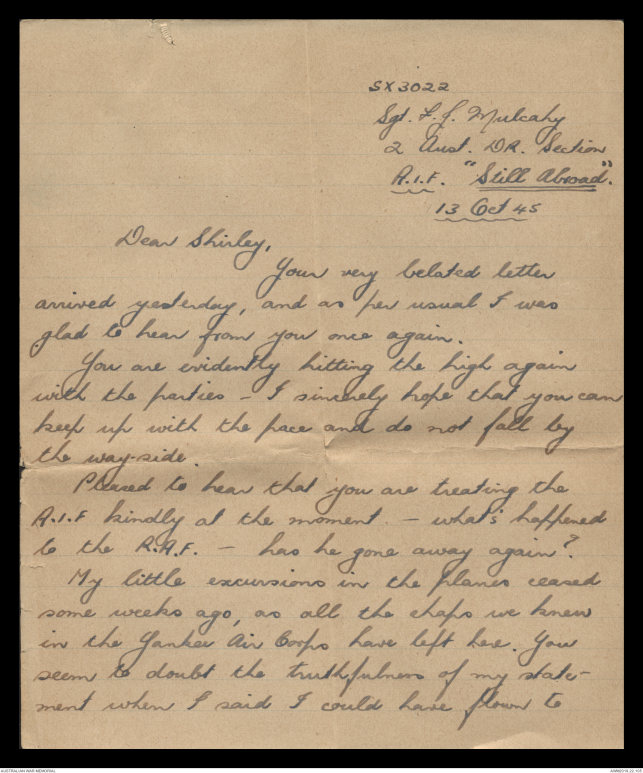 SX3022
Sgt. L. J. Mulcahy
2 Aust. DR. Section
A.I.F. "Still Abroad".
13 Oct 45
Dear Shirley,
Your very belated letter
arrived yesterday, and as per usual I was
glad to hear from you once again.
You are evidently hitting the high again
with the parties - I sincerely hope that you can
keep up with the pace and do not fall by
the way-side.
Pleased to hear that you are treating the
A.I.F kindly at the moment. - what's happened
to the R.A.F. - has he gone away again?
My little excursions in the planes ceased
some weeks ago, as all the chaps we knew
in the Yankee Air Corps have left here. You
seem to doubt the truthfulness of my state-
ment when I said I could have flown to
AUSTRALIAN WAR MEMORIAL